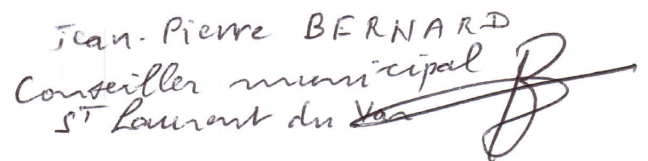 Jean-Pierre BERNARD
Conseiller municipal
ST Laurent du Var